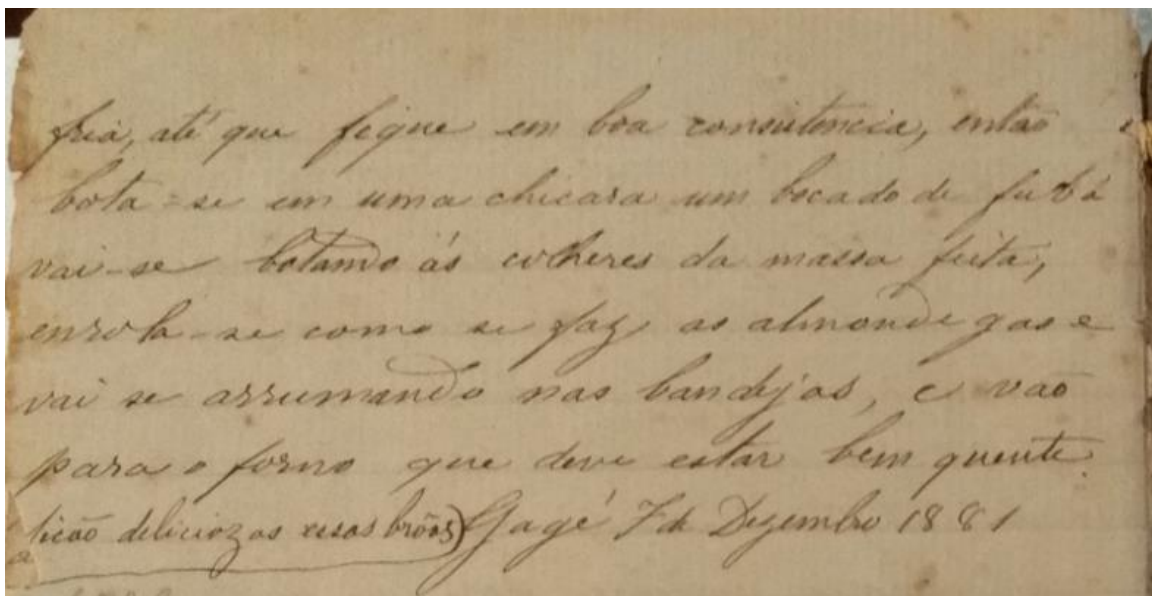 fria, até que fique em boa consistencia, então
bota-se em uma chicara um bocado de fubá
vai-se botando ás colheres da massa feita,
enrola-se como se faz as almondegas e
vai se arrumando nas bandejas, e vão
para o forno que deve estar bem quente
ficão deliciozas essas brôas) Gagé 7 de Dezembro 1881